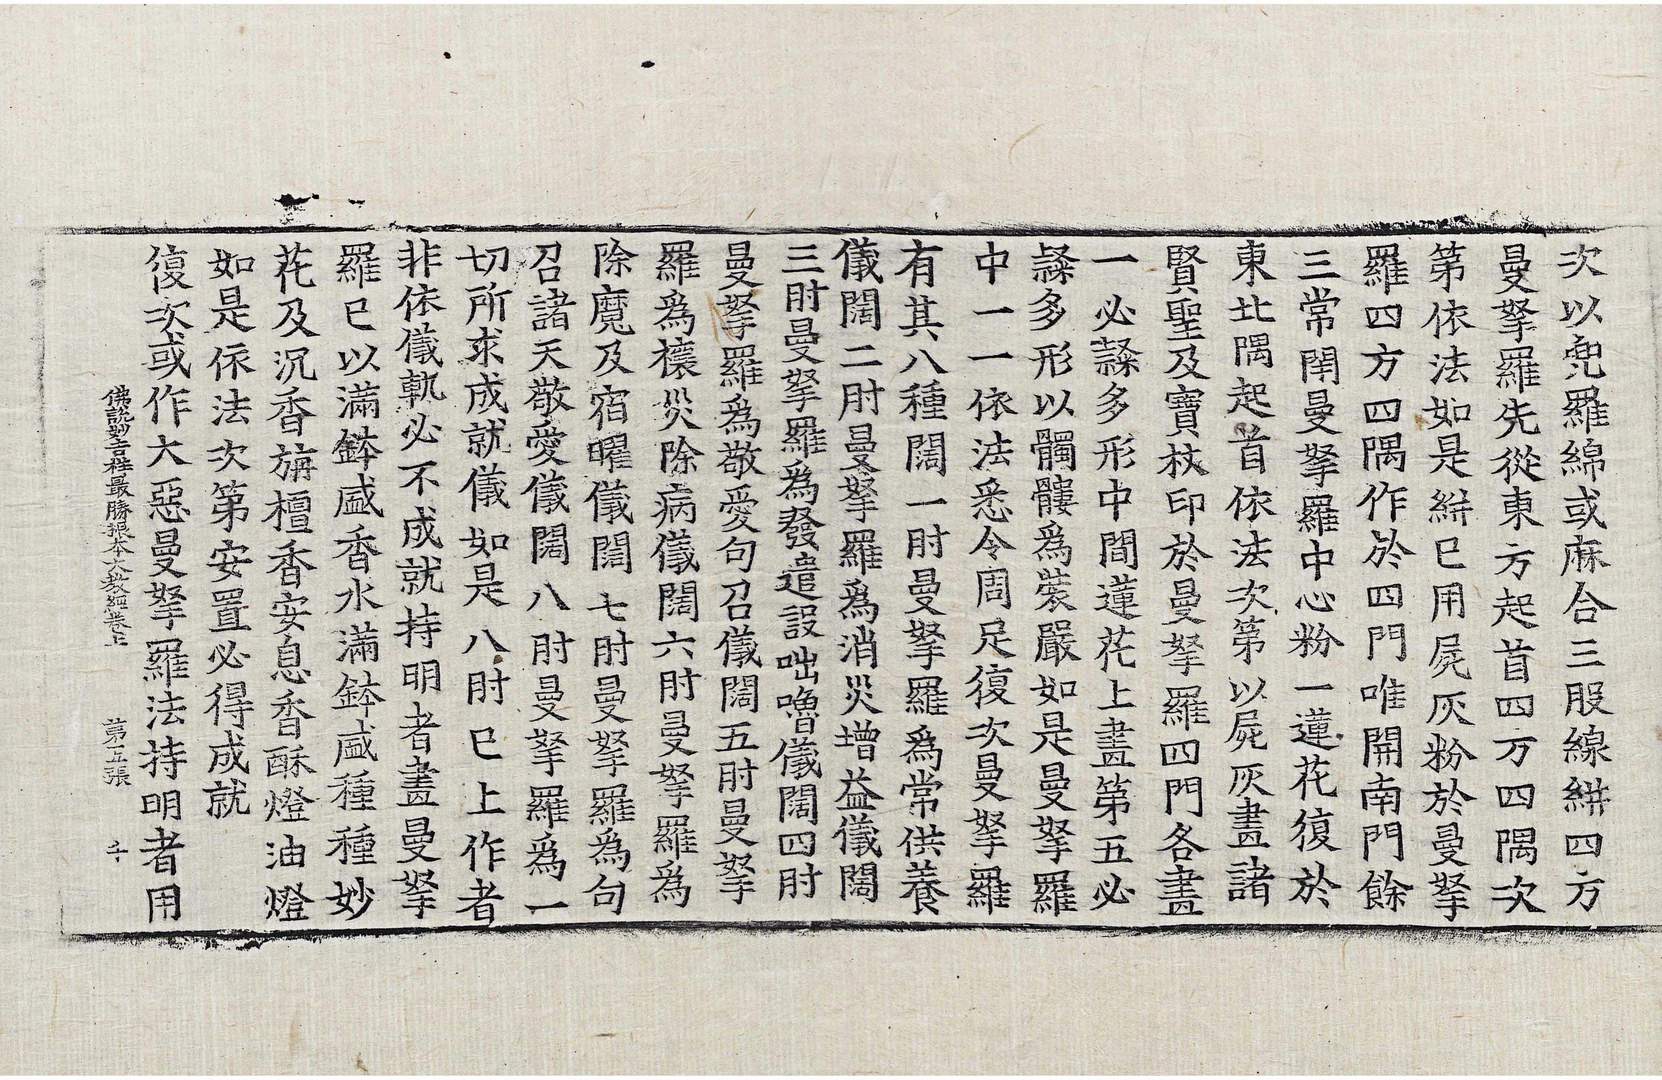 次以兠羅綿或麻合三股線絣四方
曼拏羅先從東方起首四方四隅次
第依法如是絣已用屍灰粉於曼拏
羅四方四隅作於四門唯開南門餘
三常閇曼拏羅中心粉一蓮花復於
東北隅起首依法次第以屍灰畫諸
賢聖及寶杖印於曼拏羅四門各畫
一必隸多形中間蓮花上畫第五必
隸多形以髑髏為裝嚴如是曼拏羅
中一一依法悉令周足復次曼拏羅
有其八種闊一肘曼拏羅為常供養
儀闊二肘曼拏羅為消災增益儀闊
三肘曼拏羅為發遣設咄嚕儀闊四肘
曼拏羅為敬愛句召儀闊五肘曼拏
羅為禳災除病儀闊六肘曼拏羅為
除魔及宿曜儀闊七肘曼拏羅為句
召諸天敬愛儀闊八肘曼拏羅為一
切所求成就儀如是八肘已上作者
非依儀軌必不成就持明者畫曼拏
羅已以滿鉢盛香水滿鉢盛種種妙
花及沉香旃檀香安息香酥燈油燈
如是依法次第安置必得成就
復次或作大惡曼拏羅法持明者用
佛說妙吉祥最勝根本大教經卷上 第五張 千